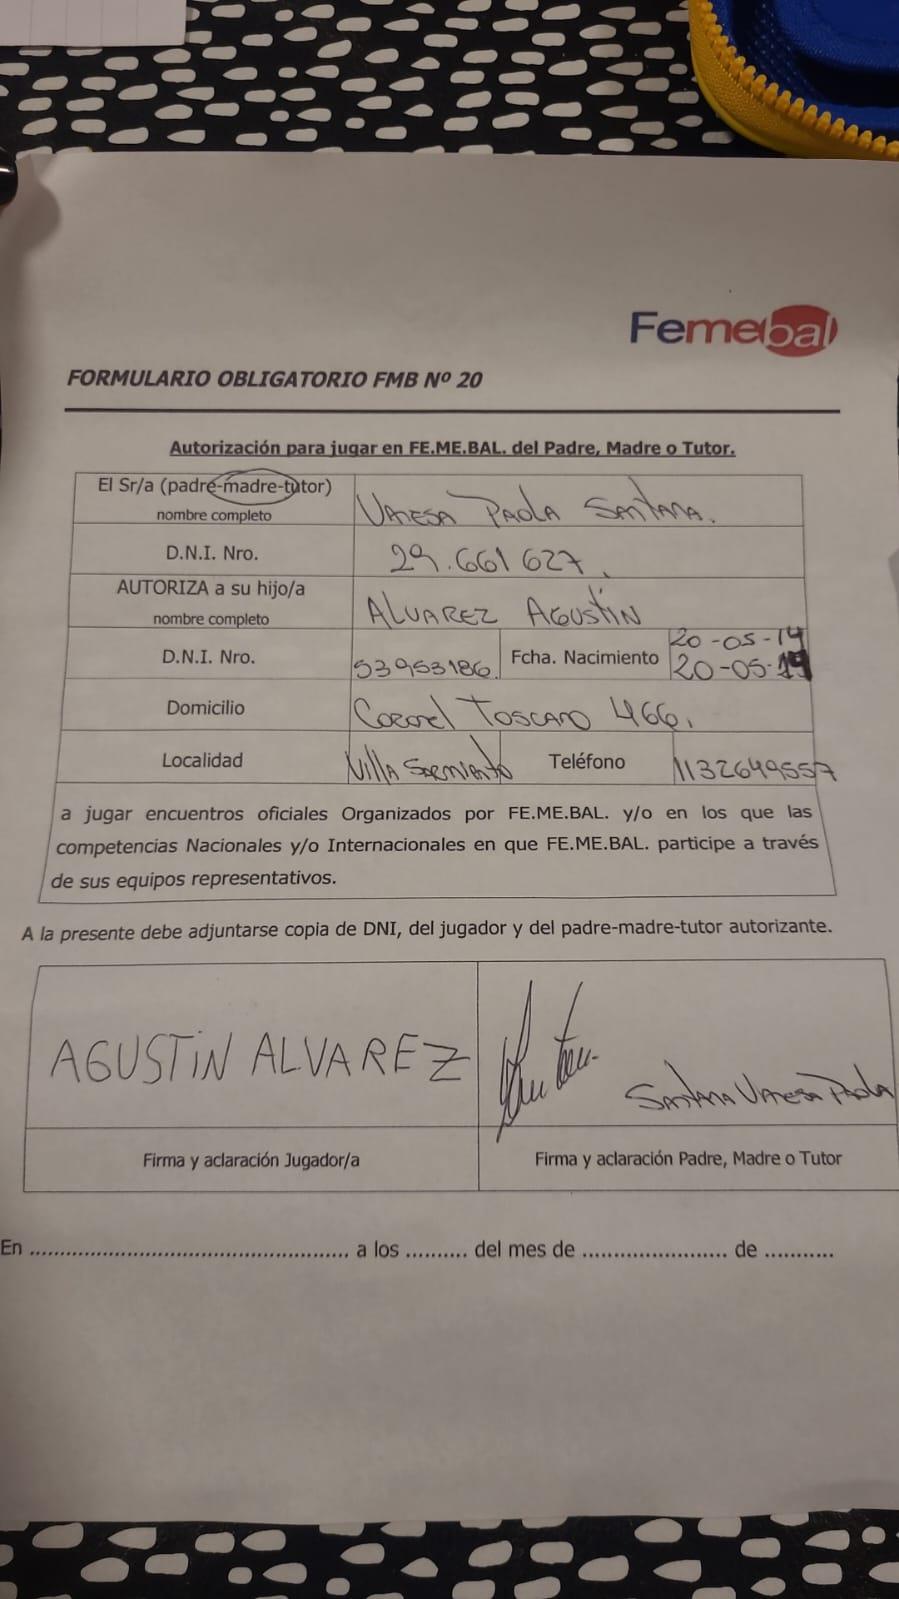 Femebal
FORMULARIO OBLIGATORIO FMB Nº 20
Autorización para jugar en FE.ME.BAL. del Padre, Madre o Tutor.
El Sr/a (padre-madre-tutor)
nombre completo
VANESA PAOLA SANTANA.
D.N.I. Nro.
29.661627.
AUTORIZA a su hijo/a
nombre completo
ALVAREZ AGUSTíN
D.N.I. Nro.
53953186.
Fcha. Nacimiento
20-05-14
20-05-14
Domicilio
Coronel TOSCANO 466.
Localidad
Villa SARMIENTO
Teléfono
1132649557
a jugar encuentros oficiales Organizados por FE.ME.BAL. y/o en los que las
competencias Nacionales y/o Internacionales en que FE.ME.BAL. participe a través
de sus equipos representativos.
A la presente debe adjuntarse copia de DNI, del jugador y del padre-madre-tutor autorizante.
AGUSTiN ALVAREZ
SANTANA VANESA PAOLA
Firma y aclaración Jugador/a
Firma y aclaración Padre, Madre o Tutor
En ..................................................... a los .......... del mes de ........................ de ...........